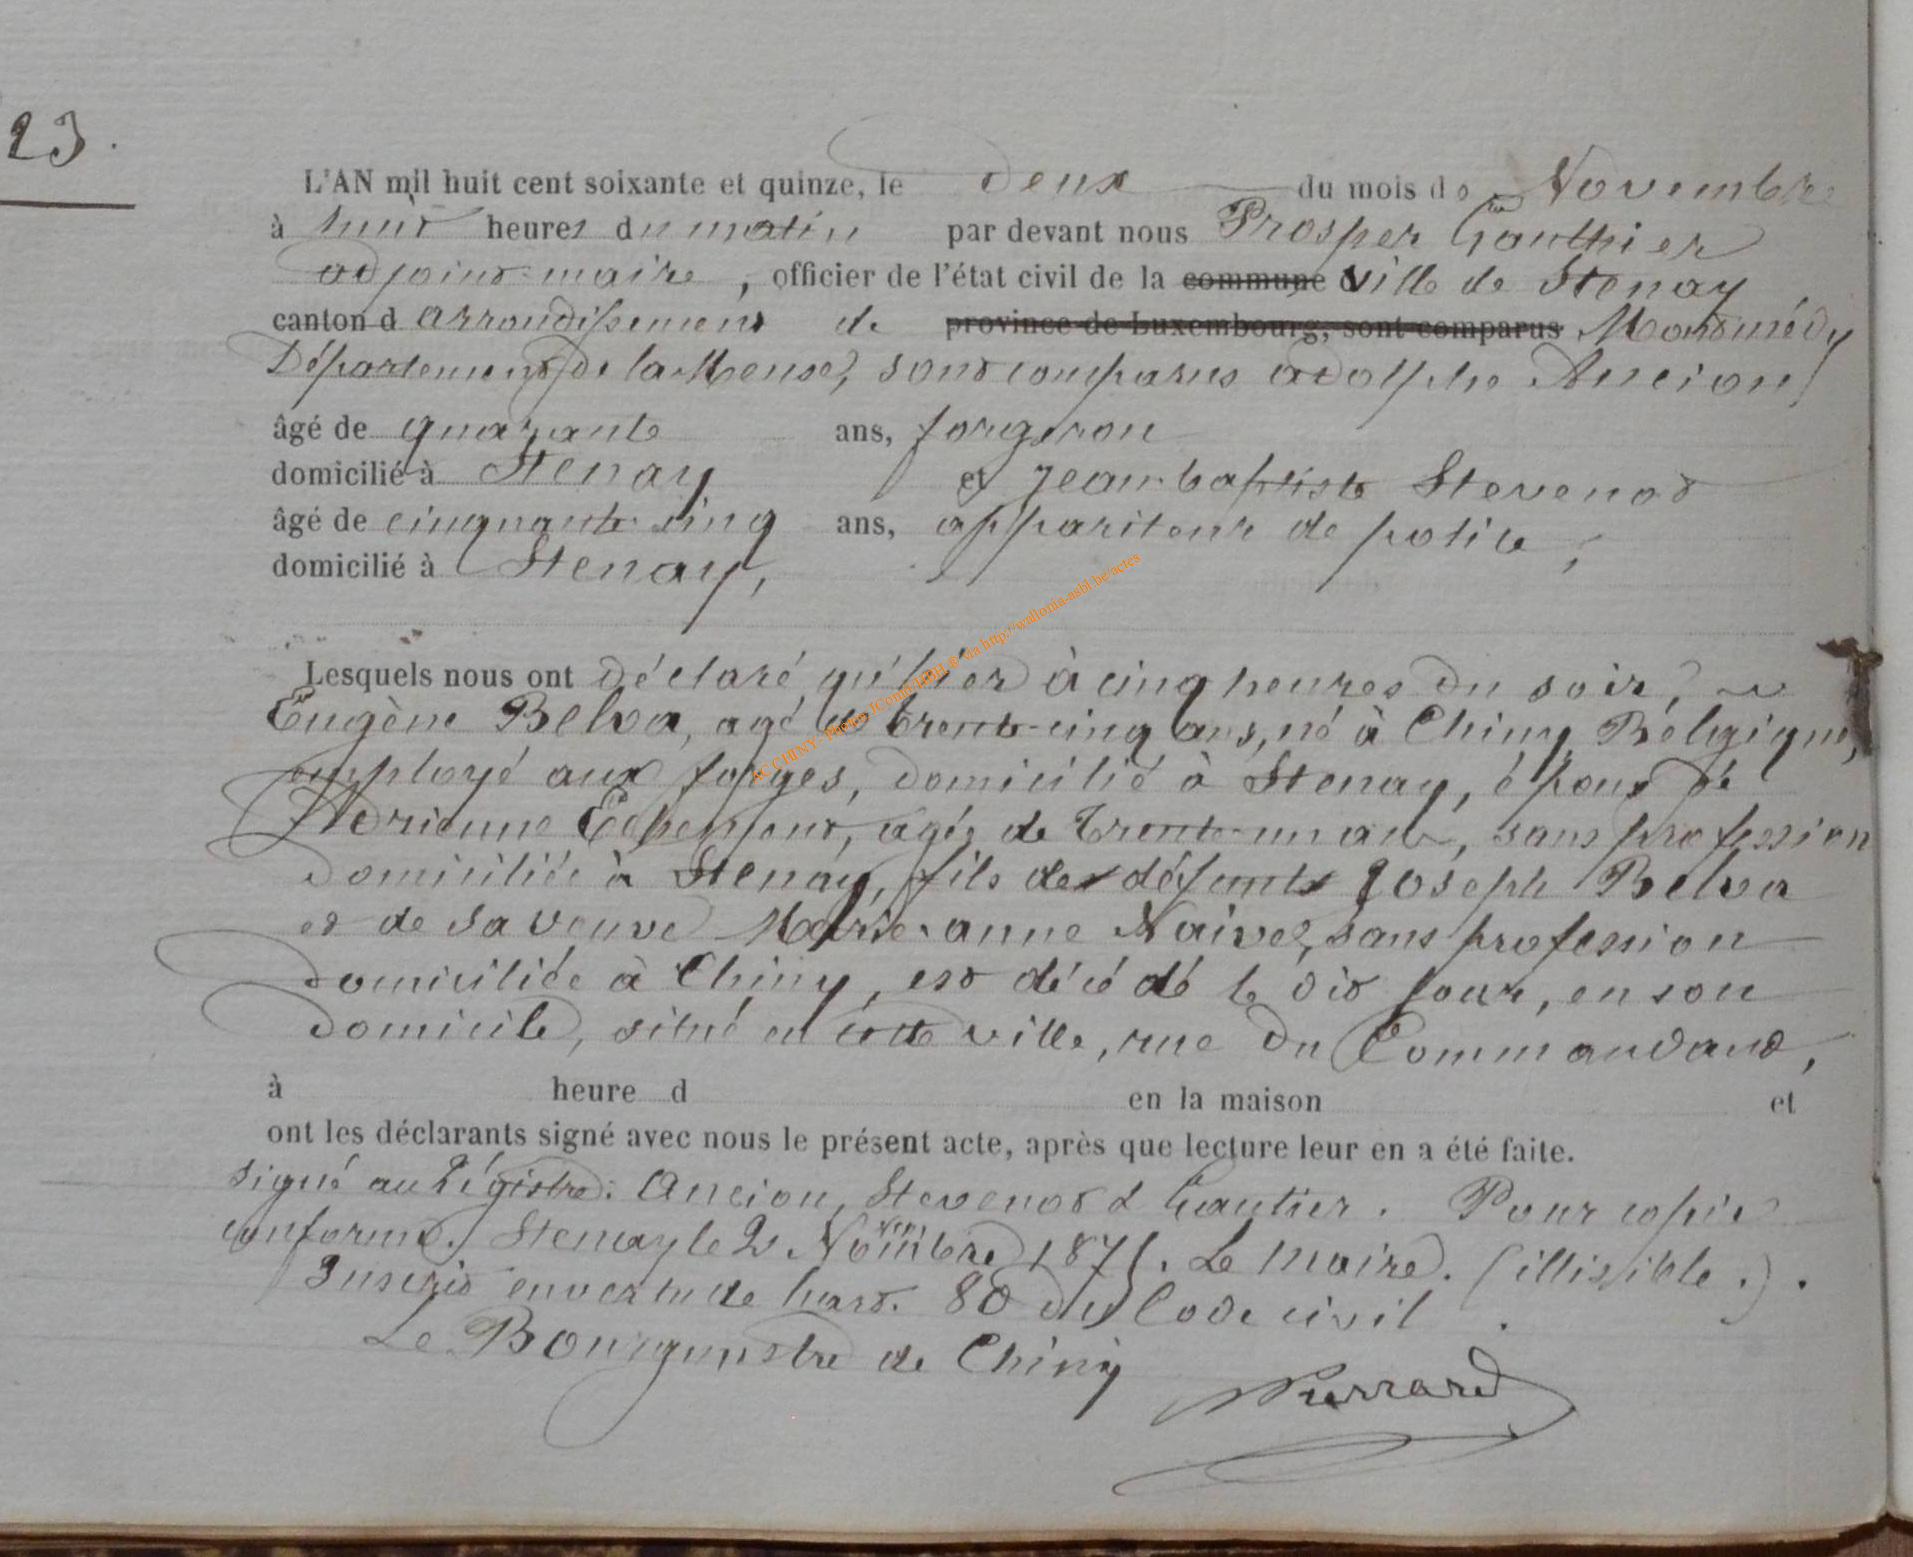 23.
L'AN mil huit cent soixante et quinze, le deux du mois de Novembre
à huit heures du matin par devant nous Prosper Gauthier
adjoint-maire, officier de l'état civil de la commune d ville de Stenay
canton d arrondissement de province de Luxembourg, sont comparus Montmédy
Département de la Meuse, sont comparus adolphe Ancion
âgé de quarante ans, forgeron
domicilié à Stenay et Jean-baptiste Stevenot
âgé de cinquante cinq ans, appariteur de police,
domicilié à Stenay,
Lesquels nous ont déclaré qu'hier à cinq heures du soir,
Eugène Belva, agé de trente-cinq ans, né à Chiny Belgique,
employé aux forges, domicilié à Stenay, époux de
Adrienne agée de trente-un ans, sans profession
domiciliée à Stenay, fils des défunts Joseph Belva
et de sa veuve Marie-anne Naives, sans profession
domiciliée à Chiny, est décédé le dit jour, en son
domicile, situé en cette ville, rue du Commandant,
à heure d en la maison et
ont les déclarants signé avec nous le présent acte, après que lecture leur en a été faite.
signé au Régistre: Ancion, Stevenot & Gautier. Pour copie
conforme. Stenay le 2 Novembre 1875. Le Maire. (illisible.).
Inscrit en vertu de l'art. 80 du Code civil.
Le Bourgmestre de Chiny
Pierrard
ACCHINY - Photo JComic HBH ® via http://wallonia-asbl.be/actes